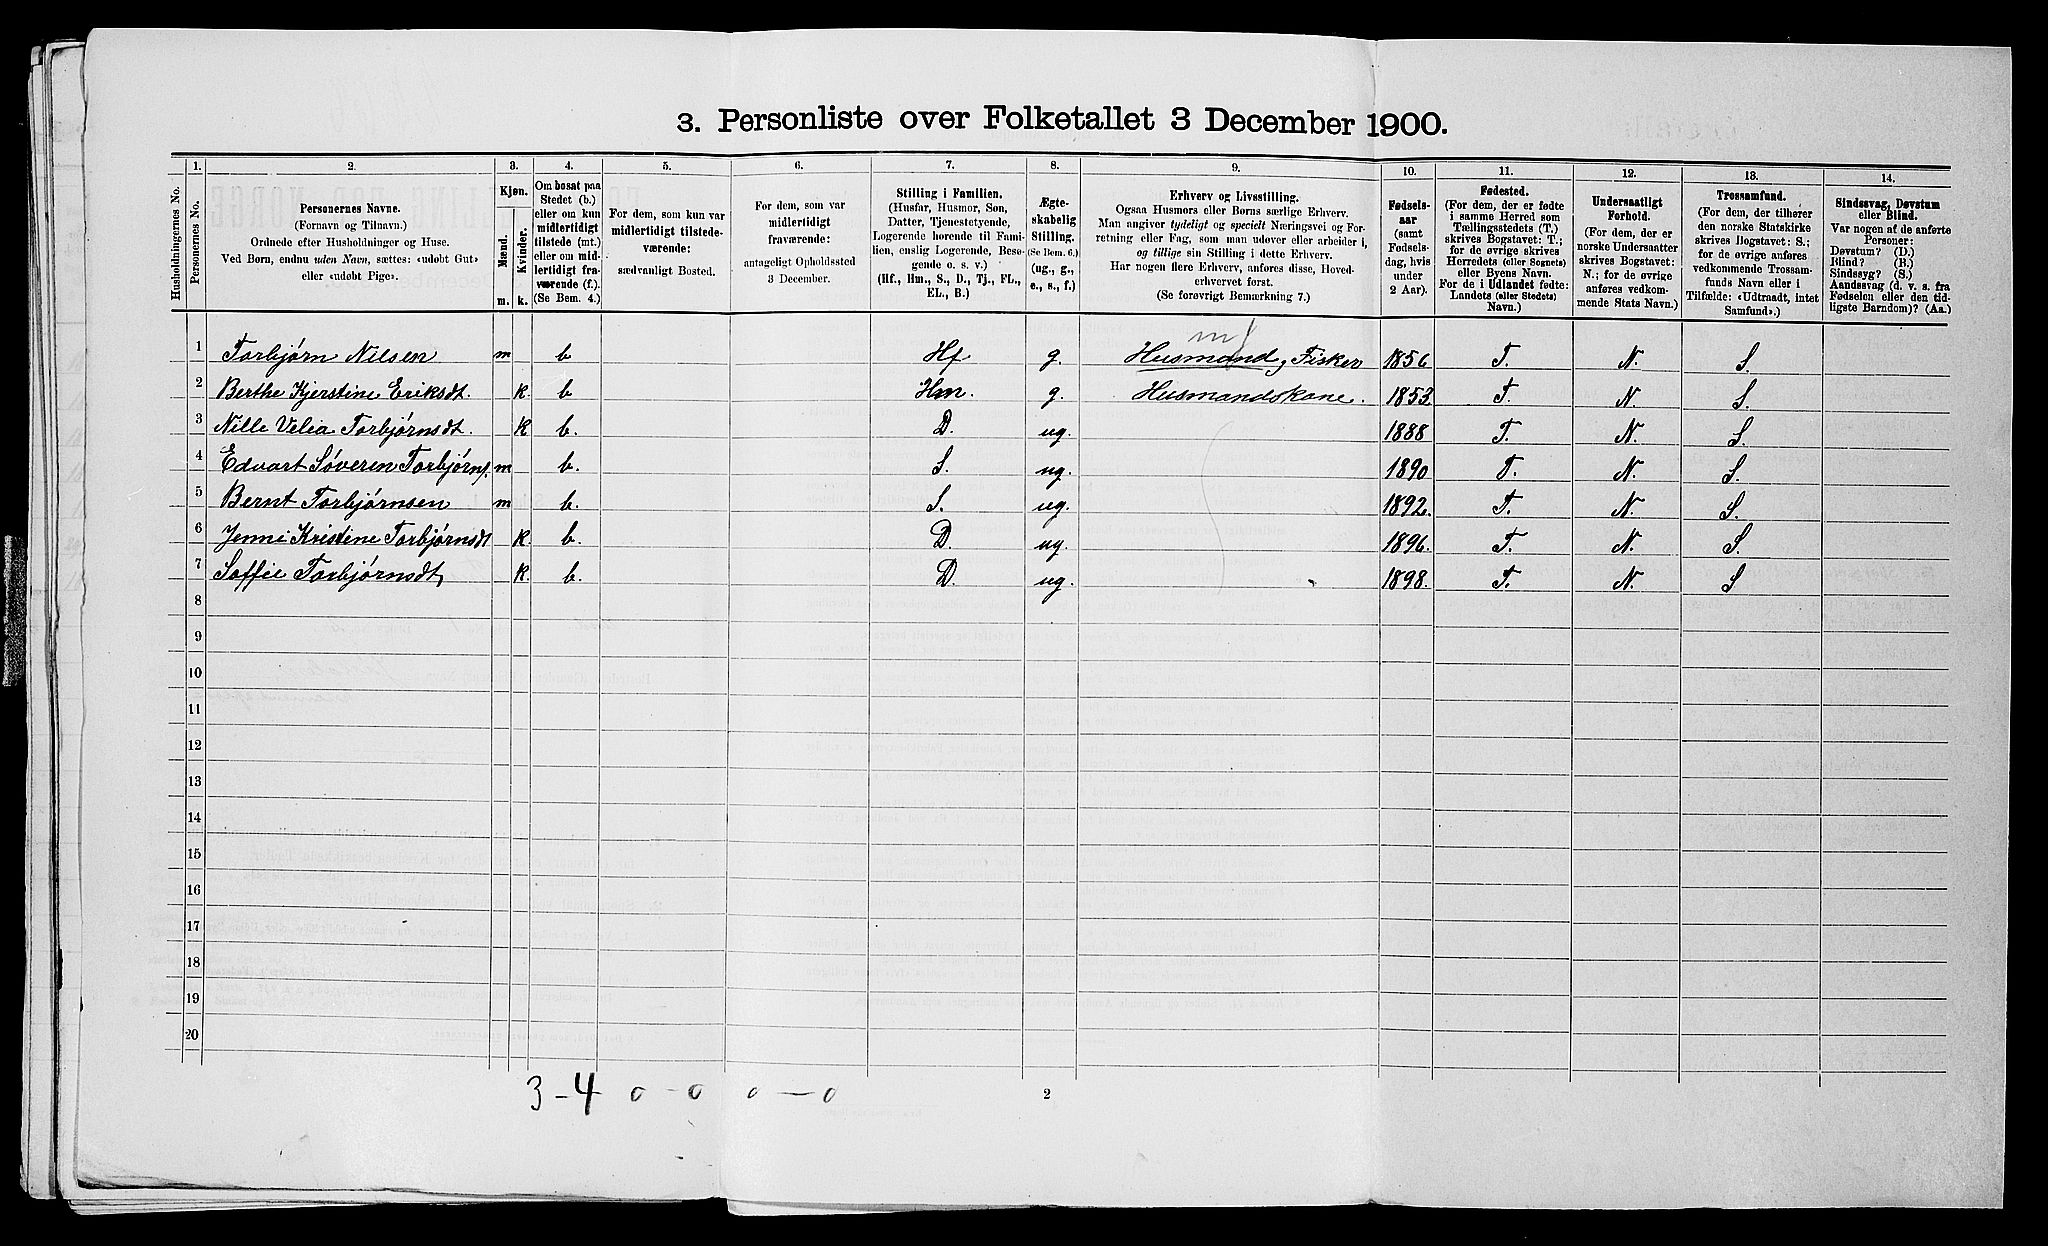 3. Personliste over Folketallet 3 December 1900.
Husholdningernes No.
1.
Personernes No.
2.
Personernes Navne.
(Fornavn og Tilnavn.)
Ordnede efter Husholdninger og Huse.
Ved Børn, endnu uden Navn, sættes: «udøbt Gut»
eller «udøbt Pige».
3.
Kjøn.
Mænd.
Kvinder.
m.
k.
4.
Om bosat paa
Stedet (b.)
eller om kun
midlertidigt
tilstede (mt.)
eller om mid-
lertidigt fra-
værende (f.).
(Se Bem. 4.)
5.
For dem, som kun var
midlertidigt tilstede-
værende:
sædvanligt Bosted.
6.
For dem, som var
midlertidigt
fraværende:
antageligt Opholdssted
3 December.
7.
Stilling i Familien.
(Husfar, Husmor, Søn,
Datter, Tjenestetyende,
Logerende hørende til Fami-
lien, enslig Logerende, Besø-
gende o. s. v.)
(Hf., Hm., S., D., Tj., FL.,
EL., B.)
8.
Ægte-
skabelig
Stilling.
(Se Bem. 6.)
(ug., g.,
e., s., f.)
9.
Erhverv og Livsstilling.
Ogsaa Husmors eller Børns særlige Erhverv.
Man angiver tydeligt og specielt Næringsvei og For-
retning eller Fag, som man udøver eller arbeider i,
og tillige sin Stilling i dette Erhverv.
Har nogen flere Erhverv, anføres disse, Hoved-
erhvervet først.
(Se forøvrigt Bemærkning 7.)
10.
Fødsels-
aar
(samt
Fødsels-
dag, hvis
under
2 Aar).
11.
Fødested.
(For dem, der er fødte
i samme Herred som
Tællingsstedets (T.)
skrives Bogstavet: T.;
for de øvrige skrives
Herredets (eller Sognets)
eller Byens Navn.
For de i Udlandet fødte:
Landets (eller Stedets)
Navn.)
12.
Undersaatligt
Forhold.
(For dem, der er
norske Undersaatter
skrives Bogstavet:
N.; for de øvrige
anføres vedkom-
mende Stats Navn.)
13.
Trossamfund.
(For dem, der tilhører
den norske Statskirke
skrives Bogstavet: S.;
for de øvrige anføres
vedkommende Trossam-
funds Navn eller i
Tilfælde: «Udtraadt, intet
Samfund».)
14.
Sindssvag, Døvstum
eller Blind.
Var nogen af de anførte
Personer:
Døvstum? (D.)
Blind? (B.)
Sindssyg? (S.)
Aandssvag (d. v. s. fra
Fødselen eller den tid-
ligste Barndom)? (Aa.)
1 Torbjørn Nilsen m b Hf g. Husmand, Fisker 1856 T. N. S.
2 Berthe Kjerstine Eriksdt. k b Hm. g. Husmandskone. 1853. T. N. S.
3 Nille Velea Torbjørnsdt. k b. D. ug. 1888 T. N. S.
4 Edvart Søveren Torbjørns. m b. S. ug. 1890 T. N. S.
5 Bernt Torbjørnsen m b. S. ug. 1892. T. N. S.
6 Jenni Kristine Torbjørnsdt k b. D. ug. 1896. T. N. S.
7 Soffie Torbjørnsdt k b. D. ug. 1898. T. N. S
8
9
10
11
12
13
14
15
16
17
18
19
20
3-4 0-0 0-0
2